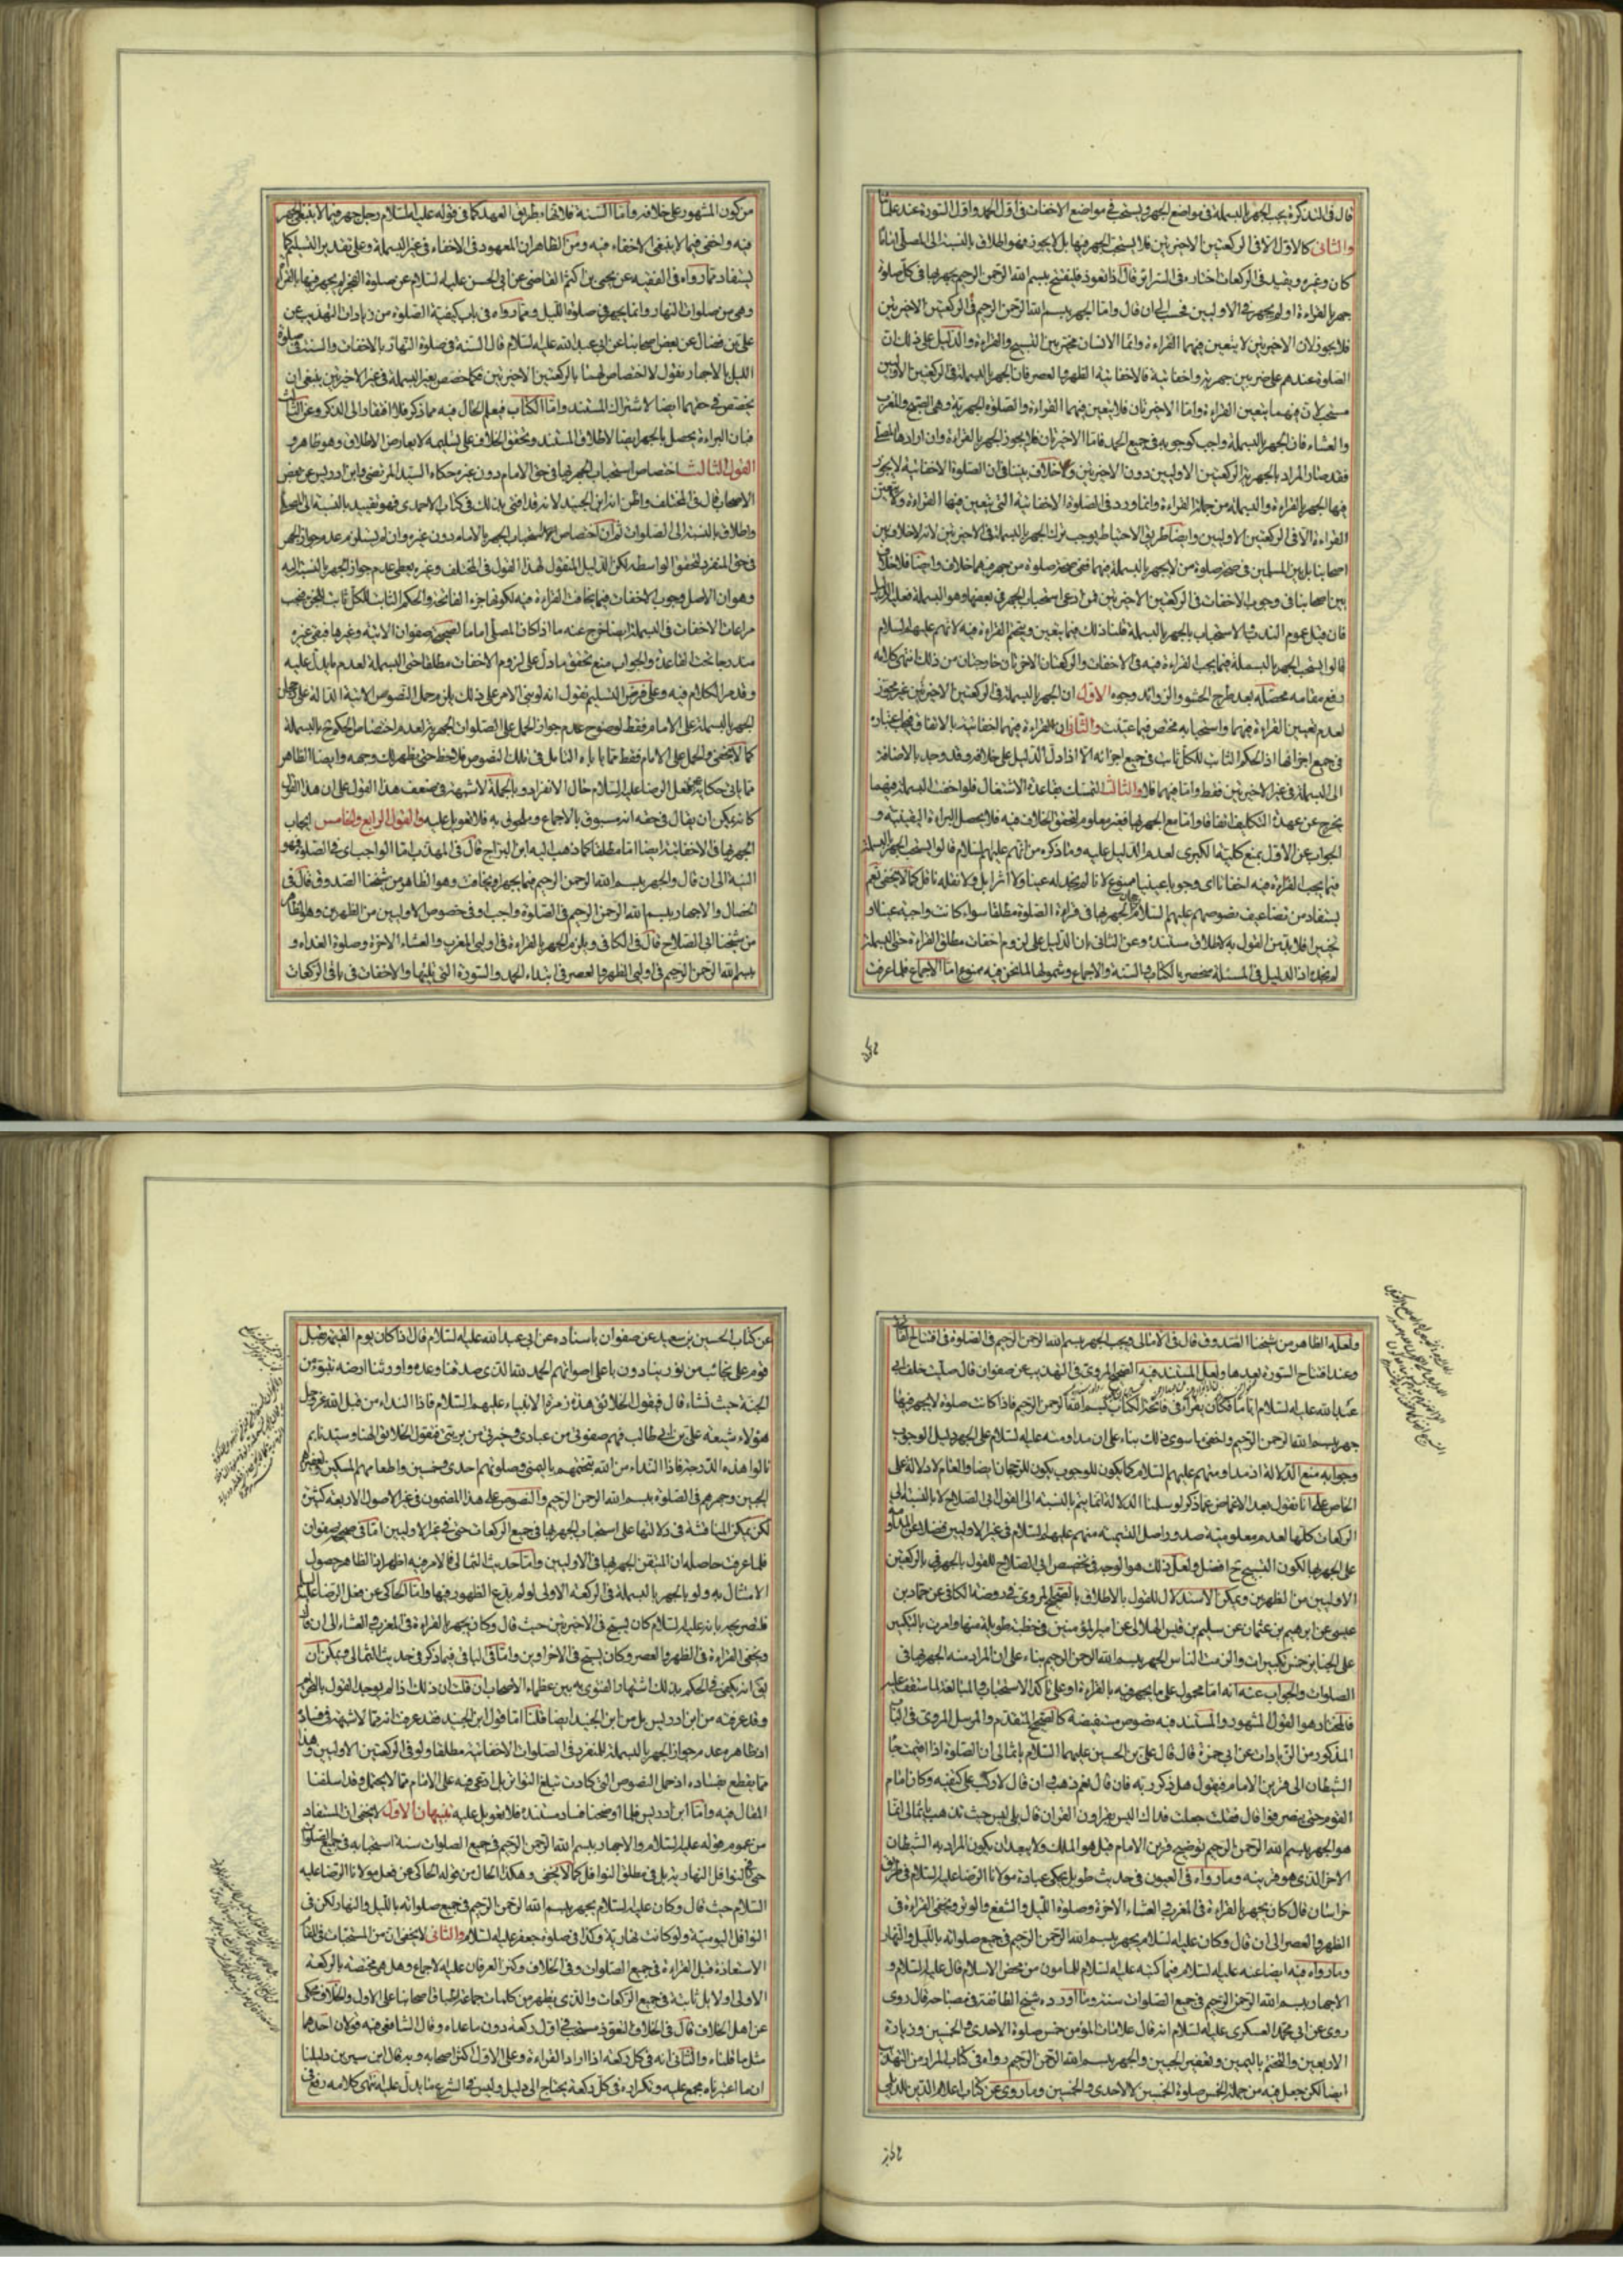 قال فى التذكرة يجب الجهر بالبسملة فى مواضع الجهر ويستحب فى مواضع الاخفات فى اول الحمد واول السورة عند علمائنا
والثانى كالاول الا فى الركعتين الاخيرتين فلا يستحب الجهر فيها بل لا يجوز فهو اطلاق بالنسبة الى المصلى اماما
كان وغيره وتقييد فى الركعات اختاره فى السرائر قال اذا تعوذ فليفتتح ببسم الله الرحمن الرحيم يجهر بها فى كل صلوة
جهر بالقراءة او لم يجهر فى الاوليين فحسب الى ان قال وامّا الجهر ببسم الله الرحمن الرحيم فى الركعتين الاخيرتين
فلا يجوز لان الاخيرتين لا يتعين فيهما القراءة وانما الانسان مخير بين التسبيح والقراءة والدليل على ذلك ان
الصلوة عندهم على ضربين جهرية واخفاتية فالاخفاتية الظهر والعصر فان الجهر بالبسملة فى الركعتين الاوليين
مستحب لان فيهما يتعين القراءة وامّا الاخيرتان فلا يتعين فيهما القراءة والصلوة الجهرية وهى الصبح والمغرب
والعشاء فان الجهر بالبسملة واجب كوجوبه فى جميع الحمد فامّا الاخيرتان فلا يجوز الجهر بالقراءة وان ارادها المصلى
فقد صار المراد بالجهر فى الركعتين الاوليين دون الاخيرتين ولا خلاف بيننا فى ان الصلوة الاخفاتية لا يجوز
فيها الجهر بالقراءة والبسملة من جملة القراءة وانما ورد فى الصلوة الاخفاتية التى يتعين فيها القراءة ولا يتعين
القراءة الّا فى الركعتين الاوليين وايضا طريق الاحتياط يوجب ترك الجهر بالبسملة فى الاخيرتين لانه لا خلاف بين
اصحابنا بل بين المسلمين فى صحة صلوة من لا يجهر بالبسملة فيهما ففى صحة صلوة من جهر فيهما خلاف وايضا فلا خلاف
بين اصحابنا فى وجوب الاخفات فى الركعتين الاخيرتين فمن ادعى استحباب الجهر فى بعضها وهو البسملة فعليه الدليل
فان قيل عموم الندب والاستحباب بالجهر بالبسملة قلنا ذلك فيما يتعين ويتحتم القراءة فيه لانهم عليهم السلام
قالوا يستحب الجهر بالبسملة فيما يجب القراءة فيه فى الاخفات والركعتان الاخيرتان خارجتان من ذلك انتهى كلامه
رفع مقامه محصله بعد طرح الحشو والزوائد وجوه الاول ان الجهر بالبسملة فى الركعتين الاخيرتين غير مجوز
لعدم تعيين القراءة فيهما واستحبابه مختص فيما عينت والثانى ان القراءة فيهما اخفاتية بالاتفاق فيجب اعتباره
فى جميع اجزائها اذ الحكم الثابت للكل ثابت فى جميع اجزائه الّا اذا دل الدليل على خلافه وقد وجد بالاضافة
الى البسملة فى غير الاخيرتين فقط وامّا فيهما فلا والثالث التمسك بقاعدة الاشتغال فلو اخفت البسملة فيهما
يخرج عن عهدة التكليف اتفاقا وامّا مع الجهر بها فغير معلوم لتحقق الخلاف فيه فلا يحصل البراءة اليقينية و
الجواب عن الاول بمنع كلية الكبرى لعدم الدليل عليه وما ذكره من انهم عليهم السلام قالوا يستحب الجهر بالبسملة
فيما يجب القراءة فيه اخفاتا اى وجوبا عينيا ممنوع لانا لم نجد له عينا ولا اثرا بل ولا نقله ناقل كما لا يخفى نعم
يستفاد من تضاعيف نصوصهم عليهم السلام الجهر بها فى قراءة الصلوة مطلقا سواء كانت واجبة عينا او
تخييرا فلا بد من القول به لاطلاق مستنده وعن الثانى بان الدليل على لزوم اخفات مطلق القراءة حتى البسملة
لم نجده اذ الدليل فى المسئلة منحصر بالكتاب والسنة والاجماع وشمولها لما نحن فيه ممنوع امّا الاجماع فلما عرفت
من كون المشهور على خلافه وامّا السنة فلاقتضاء طريق العهد كما فى قوله عليه السلام رجل جهر فيما لا ينبغى الجهر
فيه واخفى فيما لا ينبغى الاخفاء فيه ومن الظاهر ان المعهود فى الاخفاء فى غير البسملة وعلى تقدير التسليم كما
يستفاد مما رواه فى الفقيه عن يحيى بن اكثم القاضى عن ابى الحسن عليه السلام عن صلوة الفجر لم يجهر فيها بالقراءة
وهى من صلوات النهار وانما يجهر فى صلوة الليل وما رواه فى باب كيفية الصلوة من زيادات التهذيب عن
على بن فضال عن بعض اصحابنا عن ابى عبد الله عليه السلام قال السنة فى صلوة النهار بالاخفات والسنة فى صلوة
الليل بالاجهار نقول لا اختصاص لهما بالركعتين الاخيرتين فكما خصص بغير البسملة فى غير الاخيرتين ينبغى ان
يخصص فى حقهما ايضا لاشتراك المستند وامّا الكتاب فيعلم الحال فيه مما ذكر فلا افتقار الى الذكر وعن الثالث
فبان البراءة يحصل بالجهر ايضا لاطلاق المستند وتحقق الخلاف على تسليمه لا يعارض الاطلاق وهو ظاهر و
القول الثالث اختصاص استحباب الجهر بها فى حق الامام دون غيره حكاه السيد المرتضى وابن ادريس عن بعض
الاصحاب قال فى المختلف واظن انه ابن الجنيد لانه قد افتى بذلك فى كتاب الاحمدى فهو تقييد بالنسبة الى المصلى
واطلاق بالنسبة الى الصلوات ثم ان اختصاص استحباب الجهر بالامام دون غيره وان لم يستلزم عدم جواز الجهر
فى حق المنفرد لتحقق الواسطة لكن الدليل المنقول لهذا القول فى المختلف وغيره يعطى عدم جواز الجهر بالنسبة اليه
وهو ان الاصل وجوب الاخفات فيما يخافت القراءة فيه لكونها جزء الفاتحة والحكم الثابت للكل ثابت للجزء فيجب
مراعات الاخفات فى البسملة ايضا خرج عنه ما اذا كان المصلى اماما لصحيحة صفوان الاتية وغيرها فبقى غيره
مندرجا تحت القاعدة والجواب منع تحقق ما دل على لزوم الاخفات مطلقا حتى البسملة لعدم ما يدل عليه
وقد مر الكلام فيه وعلى فرض التسليم نقول انه لو بنى الامر على ذلك يلزم حمل النصوص الاتية الدالة على رجحان
الجهر بالبسملة على الامام فقط لوضوح عدم جواز الحمل على الصلوات الجهرية لعدم اختصاص الحكم بالبسملة
كما لا يخفى والحمل على الامام فقط مما ياباه التامل فى تلك النصوص فلاحظ حتى يظهر لك وجهه وايضا الظاهر
مما ياتى حكايته من فعل الرضا عليه السلام حال الانفراد وبالجملة لا شبهة فى ضعف هذا القول على ان هذا القول
كانه يمكن ان يقال فى حقه انه مسبوق بالاجماع وملحوق به فلا تعويل عليه والقول الرابع والخامس ايجاب
الجهر بها فى الاخفاتية ايضا امّا مطلقا كما ذهب اليه ابن البراج قال فى المهذب امّا الواجبات فى الصلوة فهو
النية الى ان قال والجهر ببسم الله الرحمن الرحيم فيما يجهر ويخافت وهو الظاهر من شيخنا الصدوق قال فى
الخصال والاجهار ببسم الله الرحمن الرحيم فى الصلوة واجب او فى خصوص الاوليين من الظهرين وهو الظاهر
من شيخنا ابى الصلاح قال فى الكافى ويلزم الجهر بالقراءة فى اولى المغرب والعشاء الاخرة وصلوة الغداء و
ببسم الله الرحمن الرحيم فى اوليى الظهر والعصر فى ابتداء الحمد والسورة التى تليها والاخفات فى باقى الركعات
ولعله الظاهر من شيخنا الصدوق قال فى الامالى ويجب الجهر ببسم الله الرحمن الرحيم فى الصلوة فى افتتاح الفاتحة
وعند افتتاح السورة بعدها ولعل المستند فيه الصحيح المروى فى التهذيب عن صفوان قال صليت خلف ابى
عبد الله عليه السلام اياما فكان يقراء فى فاتحة الكتاب ببسم الله الرحمن الرحيم فاذا كانت صلوة لا يجهر فيها
جهر ببسم الله الرحمن الرحيم واخفى ما سوى ذلك بناء على ان مداومته عليه السلام على الجهر دليل الوجوب
وجوابه منع الدلالة اذ مداومتهم عليهم السلام كما يكون للوجوب يكون للرجحان ايضا والعام لا دلالة على
الخاص على انا نقول بعد الاغماض عما ذكر لو سلمنا الدلالة انما يتم بالنسبة الى القول ابى الصلاح لا بالنسبة الى
الركعات كلها لعدم معلومية صدور اصل التسمية منهم عليهم السلام فى غير الاوليين فضلا عن المداومة
على الجهر بها لكون التسبيح ح افضل ولعل ذلك هو الوجه فى تخصيص ابى الصلاح للقول بالجهر فى بالركعتين
الاوليين من الظهرين ويمكن الاستدلال للقول بالاطلاق بالصحيح المروى فى روضة الكافى عن حماد بن
عيسى عن ابرهيم بن عثمان عن سليم بن قيس الهلالى عن امير المؤمنين فى خطبة طويلة منها وامرت بالتكبير
على الجنايز خمس تكبيرات والزمت الناس الجهر ببسم الله الرحمن الرحيم بناء على ان المراد منه الجهر بها فى
الصلوات والجواب عنه انه امّا محمول على ما يجهر فيه بالقراءة او على تاكد الاستحباب والمبالغة لما ستقف عليه
فالمختار هو القول المشهور والمستند فيه نصوص مستفيضة كالصحيح المتقدم والمرسل المروى فى الباب
المذكور من الزيادات عن ابى حمزة قال قال على بن الحسين عليهما السلام يا ثمالى ان الصلوة اذا اقيمت جاء
الشيطان الى قرين الامام فيقول هل ذكر ربه فان قال نعم ذهب وان قال لا ركب على كتفيه وكان امام
القوم حتى ينصرفوا قال فقلت جعلت فداك اليس يقراون القران قال بلى ليس حيث تذهب يا ثمالى انما
هو الجهر ببسم الله الرحمن الرحيم توضيح قرين الامام قيل هو الملك ولا يبعد ان يكون المراد به الشيطان
الاخر الذى هو قرينه وما رواه فى العيون فى حديث طويل يحكى عبادة مولانا الرضا عليه السلام فى طريق
خراسان قال كان يجهر بالقراءة فى المغرب والعشاء الاخرة وصلوة الليل والشفع والوتر ويخفى القراءة فى
الظهر والعصر الى ان قال وكان عليه السلام يجهر ببسم الله الرحمن الرحيم فى جميع صلواته بالليل والنهار
وما رواه فيه ايضا عنه عليه السلام فيما كتبه عليه السلام للمامون من محض الاسلام قال عليه السلام و
الاجهار ببسم الله الرحمن الرحيم فى جميع الصلوات سنة وما اورده شيخ الطائفة فى مصباحه قال روى
روى عن ابى محمد العسكرى عليه السلام انه قال علامات المؤمن خمس صلوة الاحدى والخمسين وزيارة
الاربعين والتختم باليمين وتعفير الجبين والجهر ببسم الله الرحمن الرحيم رواه فى كتاب المزار من التهذيب
ايضا لكن جعل فيه من جملة الخمس صلوة الخمسين لا الاحدى والخمسين وما روى عن كتاب اعلام الدين للديلمى
عن كتاب الحسين بن سعيد عن صفوان باسناده عن ابى عبد الله عليه السلام قال اذا كان يوم القيمة يقبل
قوم على نجائب من نور ينادون باعلى اصواتهم الحمد لله الذى صدقنا وعده واورثنا ارضه نتبوء من
الجنة حيث نشاء قال فيقول الخلائق هذه زمرة الانبياء عليهم السلام فاذا النداء من قبل الله عز وجل
هؤلاء شيعة على بن ابى طالب فهم صفوتى من عبادى وخيرتى من بريتى فتقول الخلائق الهنا وسيدنا بم
نالوا هذه الدرجة فاذا النداء من الله بتختمهم باليمين وصلوتهم احدى وخمسين واطعامهم المسكين وتعفيرهم
الجبين وجهرهم فى الصلوة ببسم الله الرحمن الرحيم والنصوص على هذا المضمون فى غير الاصول الاربعة كثيرة
لكن يمكن المناقشة فى دلالتها على استحباب الجهر بها فى جميع الركعات حتى فى غير الاوليين امّا فى صحيح صفوان
فلما عرفت حاصله ان المتيقن الجهر بها فى الاوليين وامّا حديث الثمالى فالامر فيه اظهر اذ الظاهر حصول
الامتثال به ولو بالجهر بالبسملة فى الركعة الاولى لو لم يدع الظهور فيها وامّا الحاكى عن فعل الرضا عليه السلام
فلتصريحه بانه عليه السلام كان يسبح فى الاخيرتين حيث قال وكان يجهر بالقراءة فى المغرب والعشاء الى ان قال
ويخفى القراءة فى الظهر والعصر وكان يسبح فى الاخراوين وامّا فى الباقى فبما ذكر فى حديث الثمالى ويمكن ان
يق انه يكفى فى الحكم بذلك اشتهار الفتوى به بين عظماء الاصحاب ان قلت ان ذلك اذا لم يوجد القول بالحرمة
وقد عرفته من ابن ادريس بل من ابن الجنيد ايضا قلنا امّا قول ابن الجنيد فقد عرفت انه مما لا شبهة فى فساده
اذ ظاهره عدم جواز الجهر بالبسملة للمنفرد فى الصلوات الاخفاتية مطلقا ولو فى الركعتين الاوليين وهذا
مما يقطع بفساده اذ حمل النصوص التى كادت تبلغ التواتر بل ادعى فيه على الامام مما لا يحتمل وقد اسلفنا
المقال فيه وامّا ابن ادريس فلما اوضحنا فساد مستنده فلا تعويل عليه تنبيهان الاول لا يخفى ان المستفاد
من عموم قوله عليه السلام والاجهار ببسم الله الرحمن الرحيم فى جميع الصلوات سنة استحبابه فى جميع الصلوات
حتى فى النوافل النهارية بل فى مطلق النوافل كما لا يخفى وهكذا الحال من قوله الحاكى عن فعل مولانا الرضا عليه
السلام حيث قال وكان عليه السلام يجهر ببسم الله الرحمن الرحيم فى جميع صلواته بالليل والنهار لكن فى
النوافل اليومية ولو كانت نهارية وكذا فى صلوة جعفر عليه السلام والثانى لا يخفى ان من المستحبات فى القراءة
الاستعاذة قبل القراءة فى جميع الصلوات وفى الخلاف وكنز العرفان عليه الاجماع وهل هى مختصة بالركعة
الاولى او لا بل ثابتة فى جميع الركعات والذى يظهر من كلمات جماعة اطباق اصحابنا على الاول والخلاف محكى
عن اهل الخلاف قال فى الخلاف التعوذ مستحب فى اول ركعة دون ما عداه وقال الشافعى فيه قولان احدهما
مثل ما قلناه والثانى انه فى كل ركعة اذا اراد القراءة وعلى الاول اكثر اصحابه وبه قال ابن سيرين دليلنا
ان ما اعتبرناه مجمع عليه وتكراره فى كل ركعة يحتاج الى دليل وليس فى الشرع ما يدل عليه انتهى كلامه رفع فى